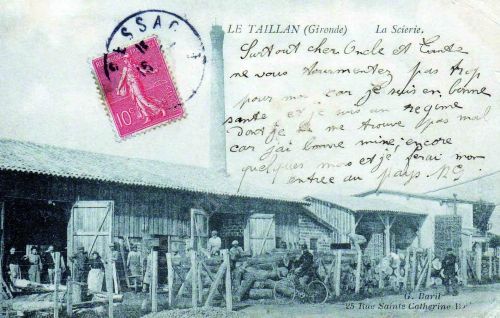 LE TAILLAN (Gironde) La Scierie.
PESSAC
10c
Surtout cher Oncle et Tante
ne vous tourmentez pas trop
pour moi car je suis en bonne
santé et je suis un régime
dont je ne me trouve pas mal
car j'ai bonne mine; encore
quelques mois et je ferai mon
entrée au pays.
G. Baril
25 Rue Sainte Catherine